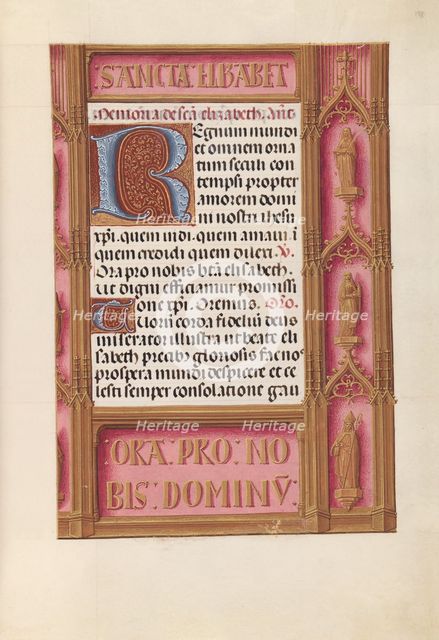 SANCTA ELIZABET
Memoria de sca elizabeth. Ant.
Regnum mundi
et omnem orna
tum seculi con
tempsi propter
amorem domi
ni nostri ihesu
xpi. quem uidi. quem amaui i
quem credidi quem dilexi. V.
Ora pro nobis bta elisabeth.
Ut digni efficiamur promissi
one xpi. Oremus. Oro.
corda fidelium deus
miserator illustra et beate eli
sabeth precibz gloriosis fac nos
prospera mundi despicere et ce
lesti semper consolatione gau
·ORA·PRO·NO
BIS·DOMINV̄·
Heritage
Heritage
Heritage
Heritage
Heritage
Heritage
Heritage